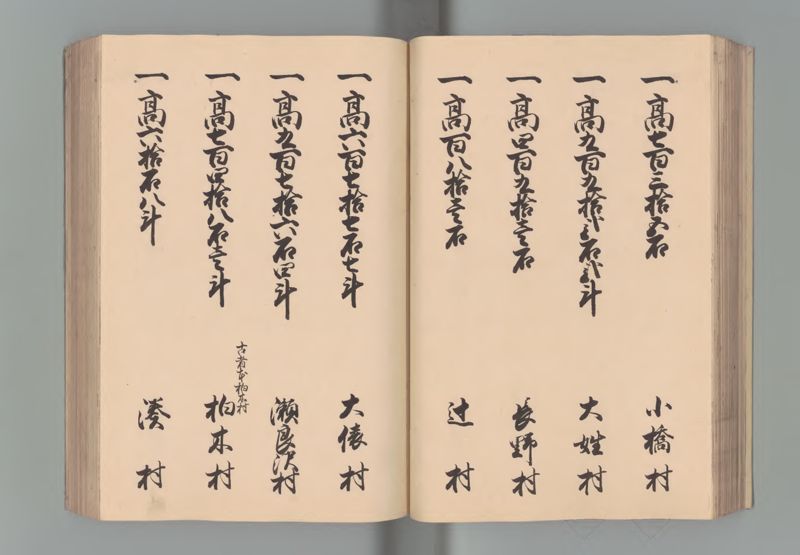 一高七百三拾五石 小橋村
一高九百九拾弐石弐斗 大姓村
一高四百九拾壱石 長野村
一高百八拾壱石 辻村
一高六百七拾七石七斗 大俵村
一高九百七拾六石四斗 瀬良沢村
一高七百四拾八石壱斗 柏木村
古者本柏木村
一高六拾石八斗 湊村